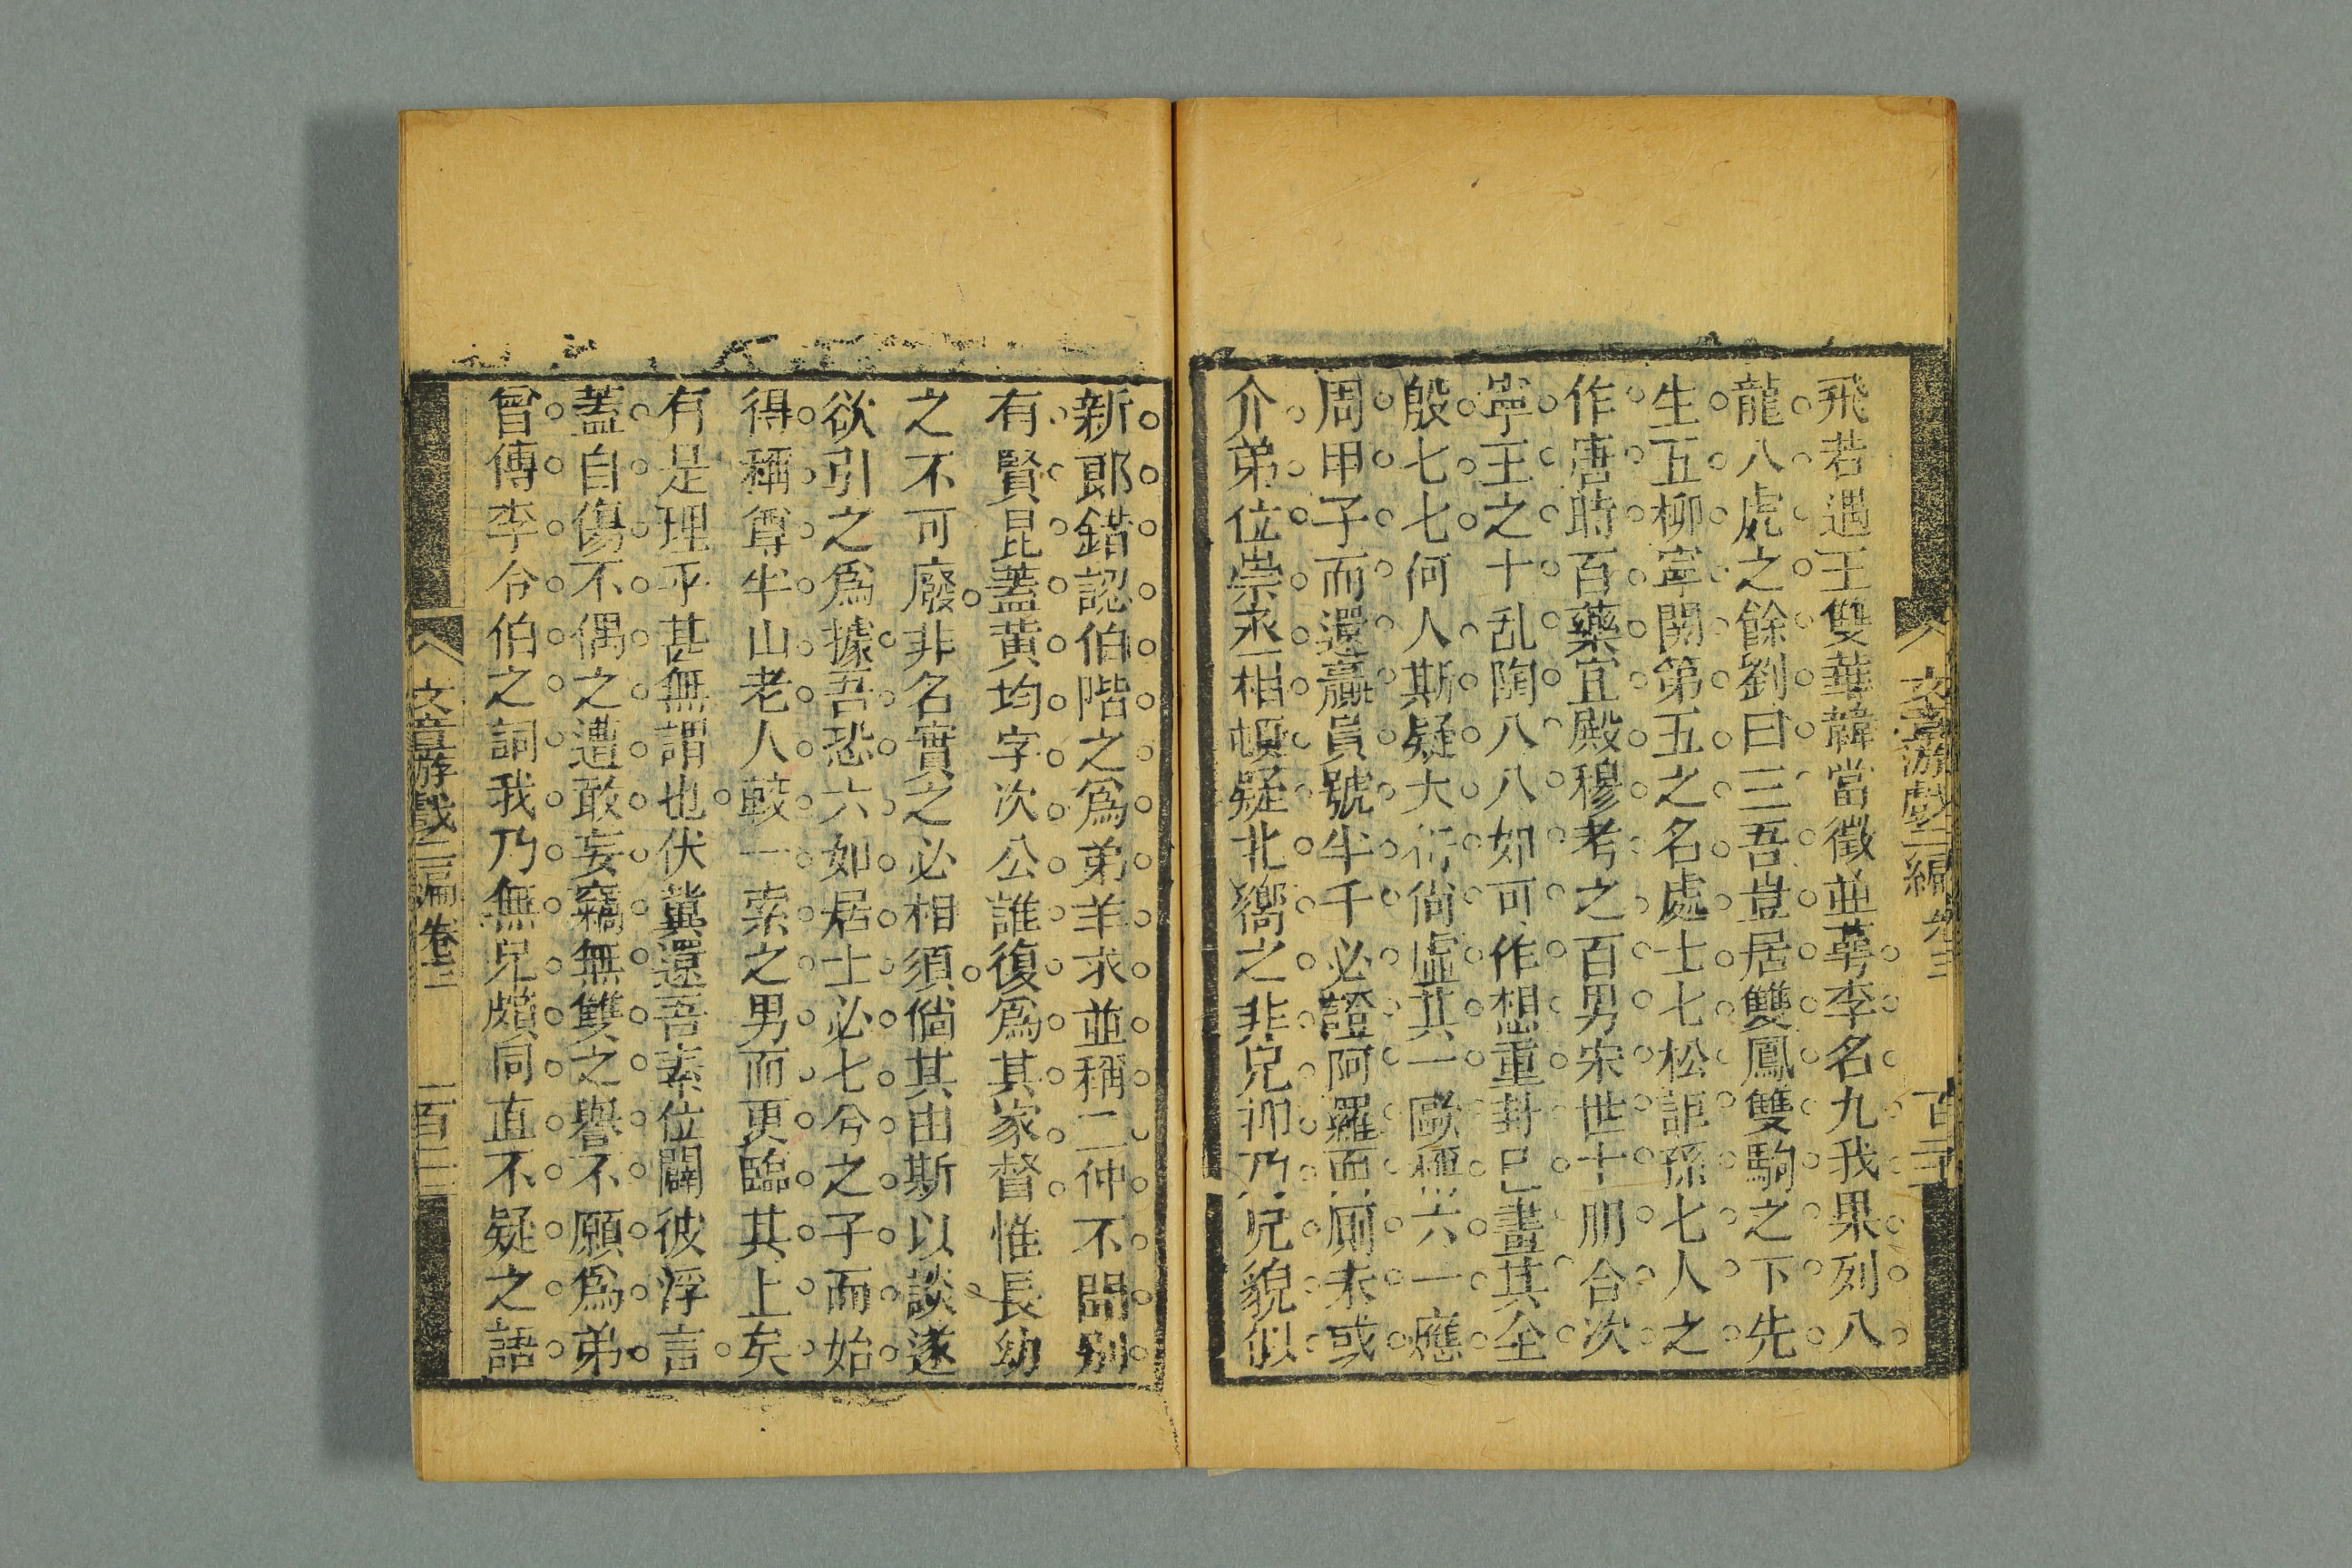 文章游戲二編 卷三 百二十
飛若遇王雙華韓當徵並萼李名九我果列八
龍八虎之餘劉曰三吾豈居雙鳳雙駒之下先
生五柳寧閟第五之名處士七松詎孫七人之
作唐時百藥宜殿穆考之百男宋世十朋合次
寧王之十乱陶八八如可作想重封已畫其全
殷七七何人斯疑大衍尙虛其一歐稱六一應
周甲子而還贏員號半千必證阿羅而廁未或
介弟位崇丞相頓疑北嚮之非兄卯乃兄貌似
新郎錯認伯階之爲弟羊求並稱二仲不聞別
有賢昆蓋黃均字次公誰復爲其家督惟長幼
之不可廢非名實之必相須倘其由斯以談遂
欲引之爲據吾恐六如居士必七兮之子而始
得稱尊半山老人較一索之男而更臨其上矣
有是理乎甚無謂也伏冀還吾素位闢彼浮言
蓋自傷不偶之遭敢妄竊無雙之譽不願爲弟
曾傳李令伯之詞我乃無兄頗同直不疑之語
文章游戲二編 卷三 一百二